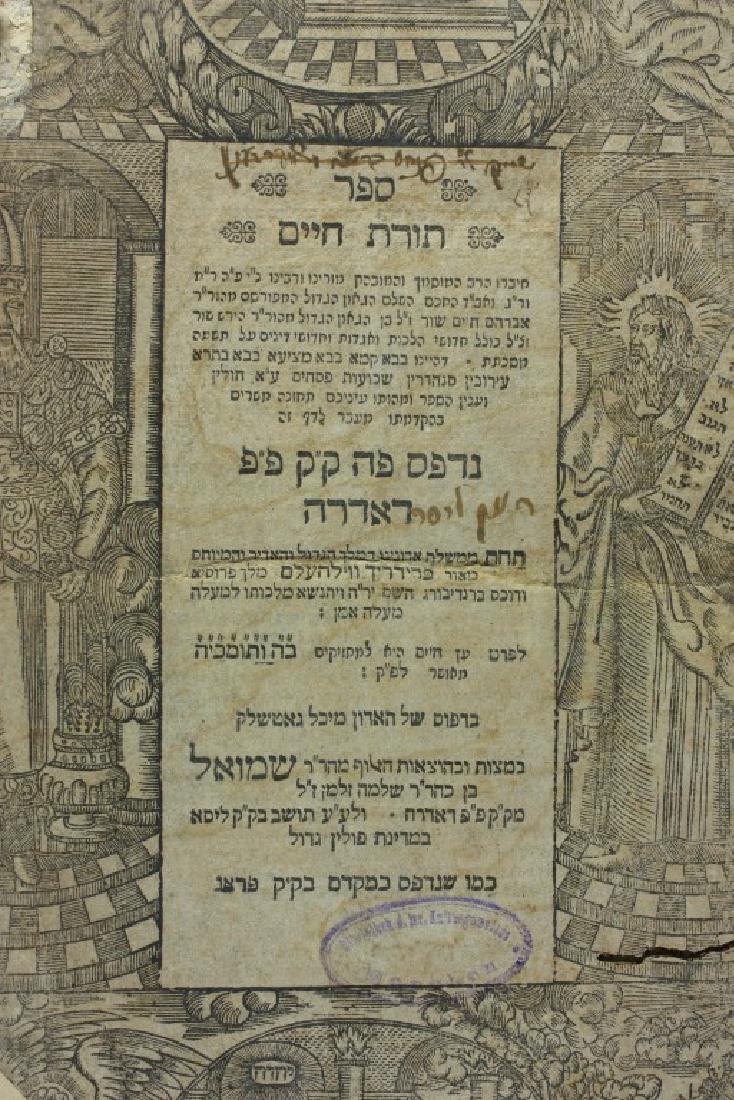 ספר
תורת חיים
חיברו הרב המוסמך והמובהק מורינו ורבינו
ור״ג ואב״ד החכם השלם הגאון הגדול המפורסם מהור״ר
אברהם חיים שור ז״ל בן הגאון הגדול מהור״ר הירש שור
זצ״ל כולל חדושי הלכות ואגדות וחדושי דינים על תשעה
מסכתת ׳ דהיינו בבא קמא בבא מציעא בבא בתרא
עירובין סנהדרין שבועות פסחים ע״א חולין
וענין הספר ומהותו עיניכם תחזנה משרים
בהקדמתו מעבר לדף זה
נדפס פה ק״ק פ״פ
דאדרה
תחת ממשלת אדונינו המלך הגדול והאדיר והמיוחס
מאור פרידריך ווילהעלם מלך פרוסיא
ודוכס ברנדיבורג השם יר״ה ויתנשא מלכותו למעלה
מעלה אמן :
לפרט עץ חיים היא למחזיקים בה ותומכיה
מאושר לפ״ק :
בדפוס של האדון מיכל גאטשלק
במצות ובהוצאות האלוף מהר״ר שמואל
בן כהר״ר שלמה זלמן ז״ל
מק״ק פ״פ דאדרה ׳ ולע״ע תושב בק״ק ליסא
במדינת פולין גדול
כמו שנדפס במקדם בק״ק פראג
יהוה